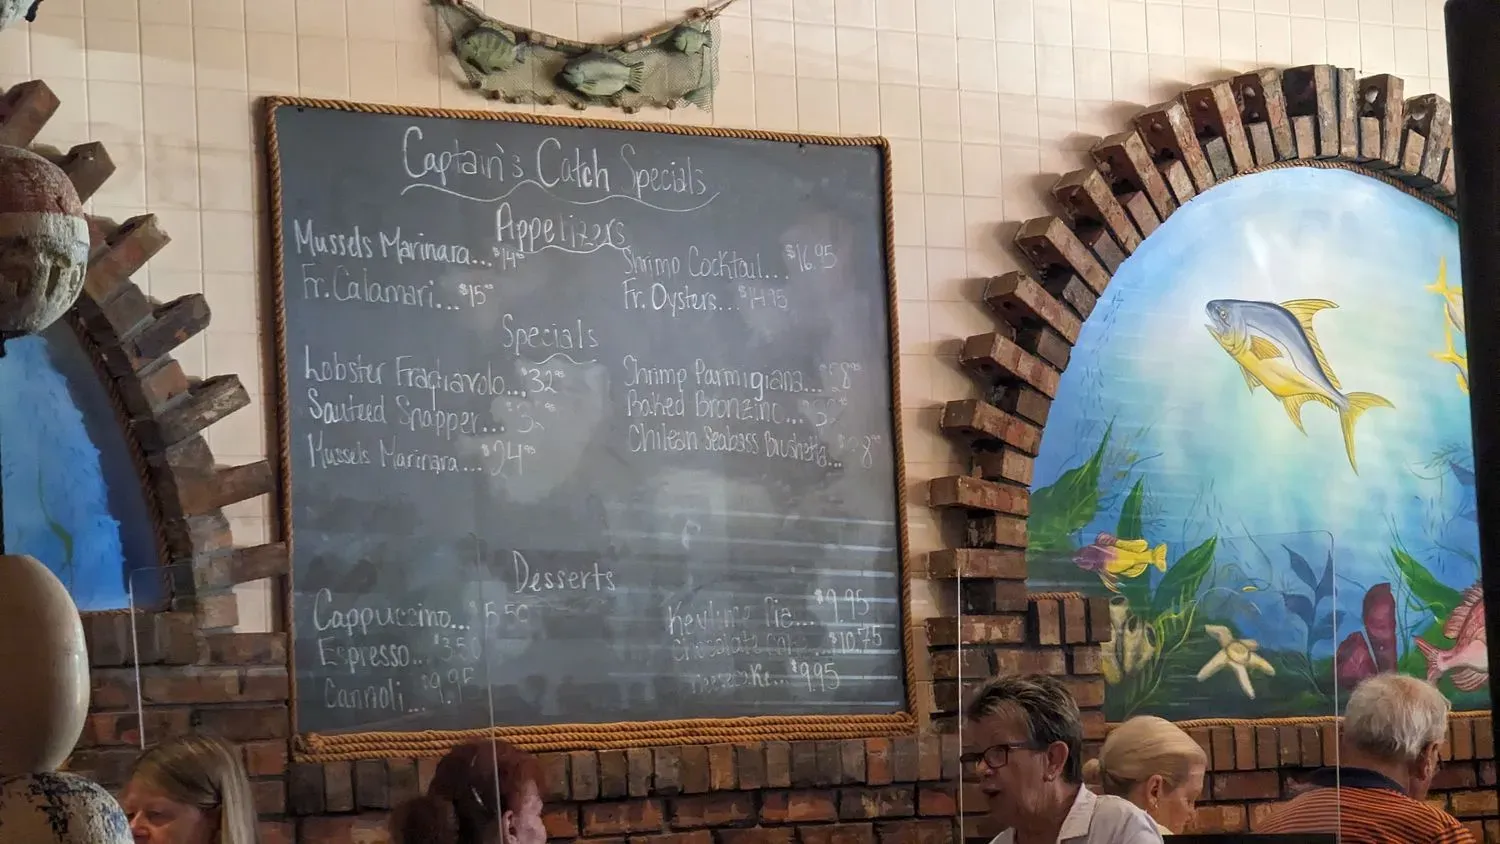 Captain's Catch Specials
Appetizers
Mussels Marinara...$14
Fr. Calamari...$15
Shrimp Cocktail...$16.95
Fr. Oysters...$14.95
Specials
Lobster Fradiavolo...$32
Sauteed Snapper...
Mussels Marinara...$24
Shrimp Parmigiana...
Baked Bronzino...
Chilean Seabass Brushetta...
Desserts
Cappuccino...5.50
Espresso..$3.50
Cannoli...$9.95
Key lime Pie...$9.95
Chocolate Cake...$10.75
$9.95